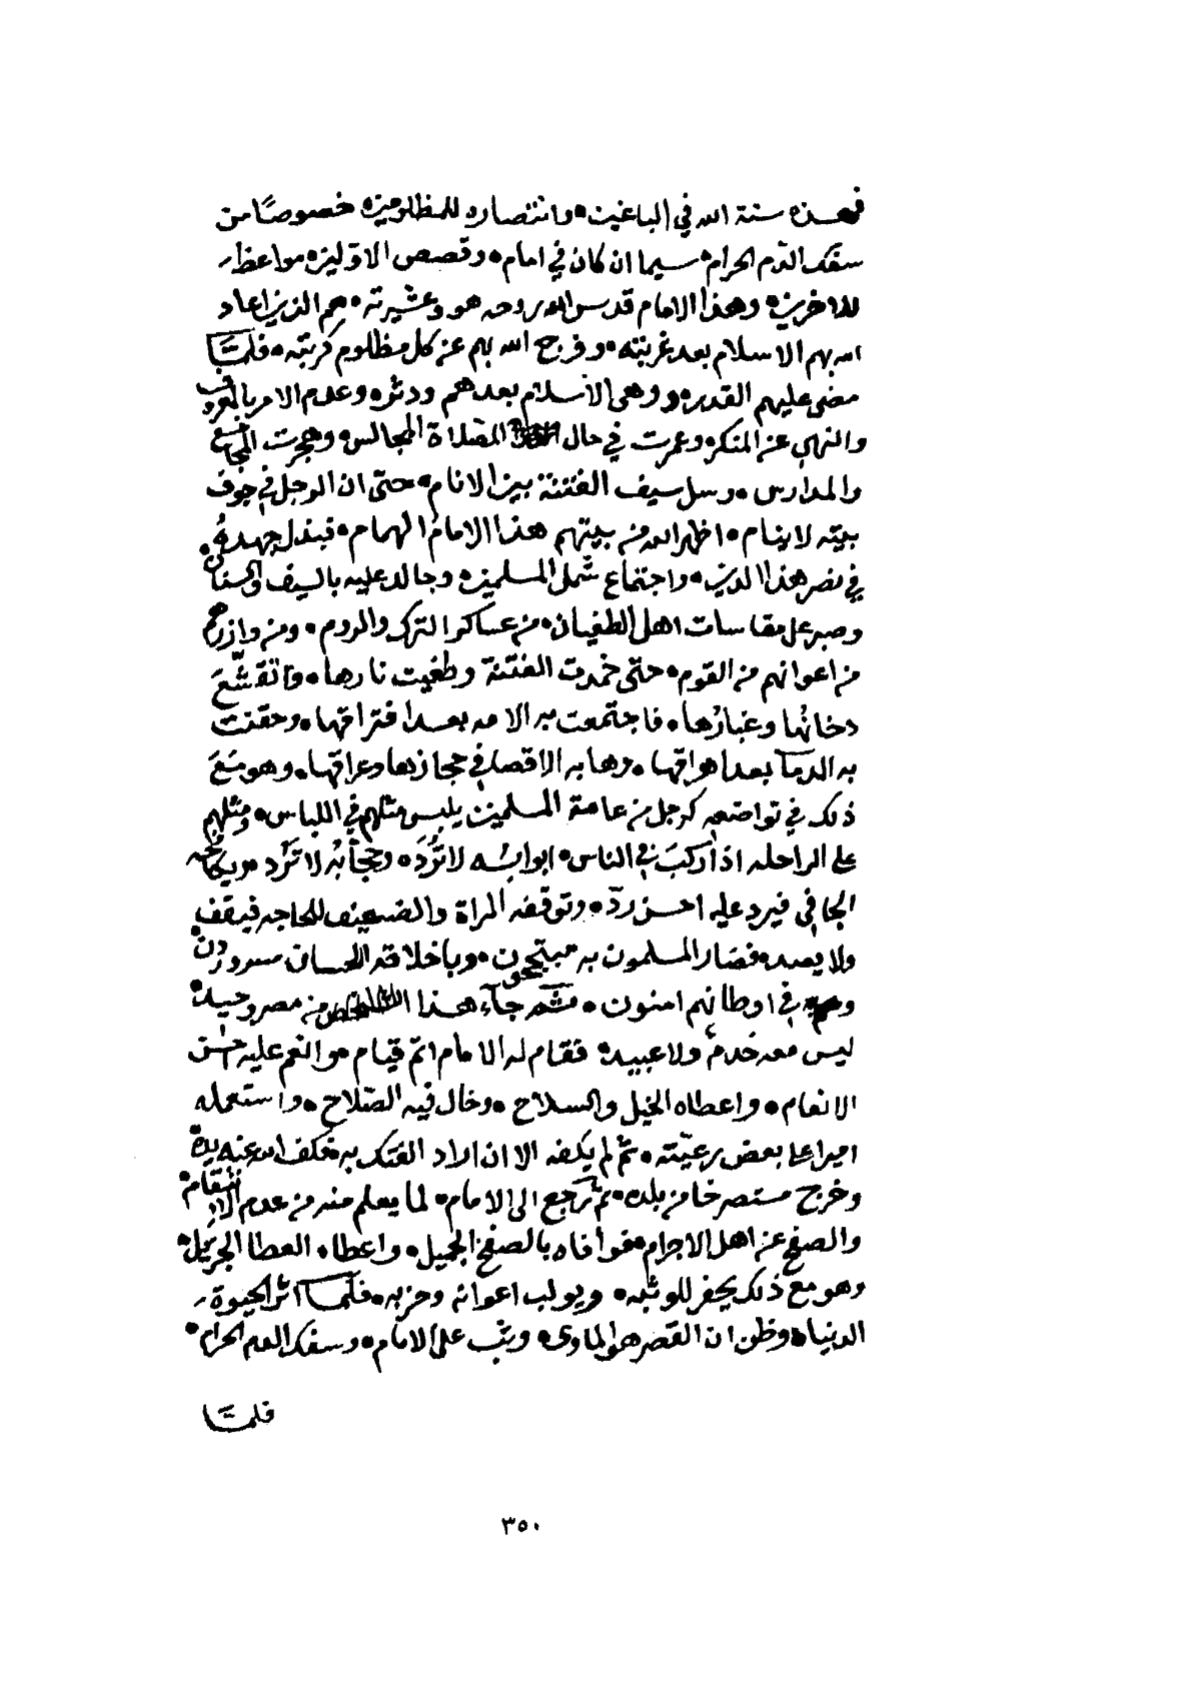 فهذه سنة الله في الباغين • وانتصاره للمظلومين • خصوصًا من
سفك الدّم الحرام • سيما ان كان في امام • وقصص الاوّلين • مواعظ
للاخرين • وهذا الامام قدس الله روحه هو وعشيرته • هم الذين اعاد
الله بهم الاسلام بعد غربته • وفرج الله بهم عن كل مظلوم كربته • فلمّا
مضى عليهم القدر • ووهى الاسلام بعدهم ودثر • وعدم الامر بالمعروف
والنهي عن المنكر • وعمرت في حال المجالس • وهجرت
والمدارس • وسل سيف الفتنة بين الانام • حتى ان الرجل في جوف
بيته لا ينام • اظهر الله من بيتهم هذا الامام الهمام • فبذل جهده •
في نصر هذا الدين • واجتماع شمل المسلمين • وجالد عليه بالسيف والسنان
وصبر على مقاسات اهل الطغيان • من عساكر الترك والروم • ومن وازرهم
من اعوانهم من القوم • حتى خمدت الفتنة وطفيت نارها • وانقشَّعَ
دخانُها وغبارُها • فاجتمعت به الامه بعد افتراقها • وحقنت
به الدمآ بعد اهراقها • وهابه الاقصا في حجازها وعراقها • وهو مَعَ
ذلك في تواضعه كرجل من عامة المسلمين يلبس مثلهم في اللباس • ومثلهم
على الراحله اذا ركبَ في الناس • ابوابُه لا تُرَدَّ • وحجابُه لا تَرُد •
الجافي فيرد عليه احسن ردّ • وتوقفه المراة والضعيف للحاجه فيقف
ولا يصد • فصار المسلمون به مبتهجون • وباخلاقه الحسان مسرورون
وهم في اوطانهم امنون • ثم جآء هذا من مصر وحيدًا •
ليس معه خدمٌ ولا عبيد • فقام له الامام اتمّ قيام • وانعم عليه حسن
الانعام • واعطاه الخيل والسلاح • وخال فيه الصّلاح • واستعمله
اميرا على بعض رعيّته • ثمّ لم يكفه الا ان اراد الفتك به • فكف الله عنه يدهُ
وخرج مستصرخا من بلده • ثم رجع الى الامام • لما يعلم منه من عدم الانتقام •
والصفح عن اهل الاجرام • فوافاه بالصفح الجميل • واعطاه العطا الجزيل •
وهو مع ذلك يحفر للوثبه • ويولب اعوانه وحزبه • فلمّا اثر الحيوة
الدنيا • وظن ان القصر هو الماوى • وثب على الامام • وسفك الدم الحرام •
فلمّا
٣٥٠